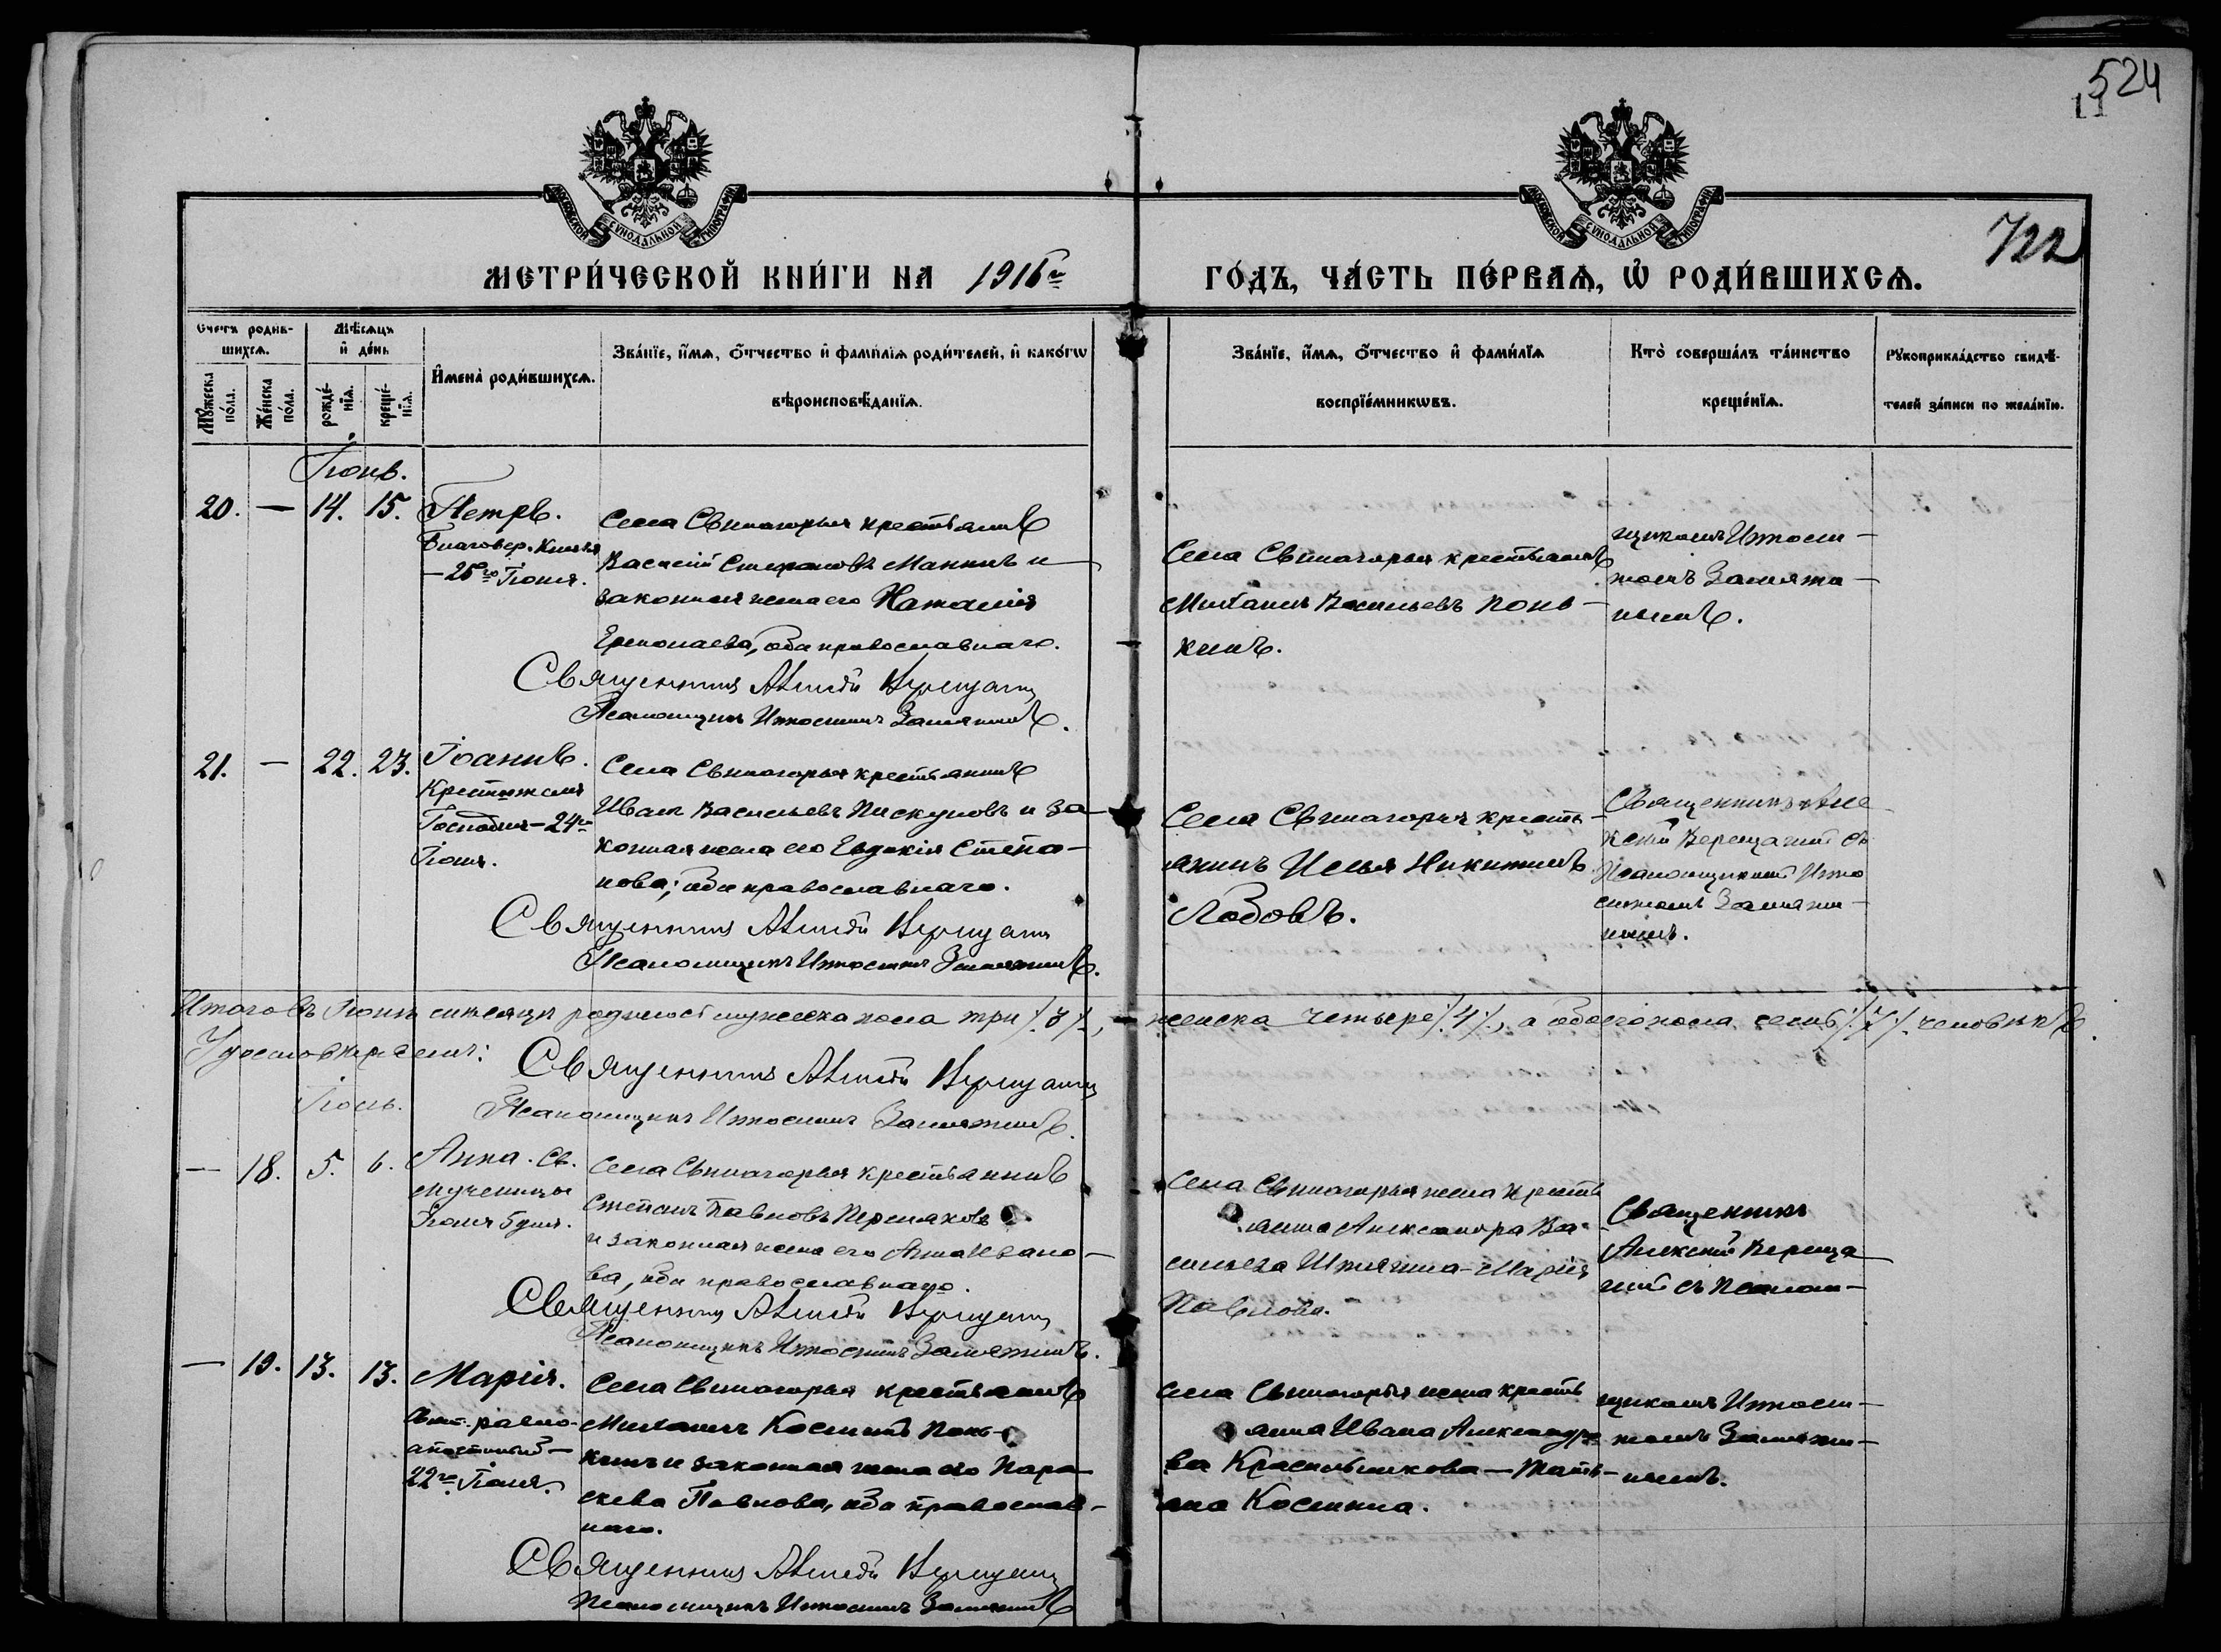 524
722
МОСКОВСКОЙ СѴНОДАЛЬНОЙ ТИПОГРАФІИ
МОСКОВСКОЙ СѴНОДАЛЬНОЙ ТИПОГРАФІИ
МЕТРИ́ЧЕСКОЙ КНИ́ГИ НА 1916 го
ГО́ДЪ, ЧА́СТЬ ПЕ́РВАѦ, Ѿ РОДИ́ВШИХСѦ.
Счетъ родив-
шихсѧ.
Мꙋжеска по́ла.
Же́нска по́ла.
Мѣсѧцъ
и҆ де́нь
рожде́-нїѧ.
креще́-нїѧ.
И҆мена̀ роди́вшихсѧ.
Зва́нїе, и҆́мѧ, ѻ҆́тчество и҆ фами́лїѧ роди́телей, и҆ како́гѡ
вѣроисповѣ́данїѧ.
Зва́нїе, и҆́мѧ, ѻ҆́тчество и҆ фами́лїѧ
воспрїе́мникѡвъ.
Кто̀ соверша́лъ та́инство
креще́нїѧ.
Рꙋкоприкла́дство свидѣ́-
телей за́писи по жела́нїю.
Іюнь.
20. — 14. 15. Петръ.
Благовер. Князя
— 25го Іюня.
Села Свиногорья крестьянинъ
Василій Стефановъ Манинъ и
законная жена его Наталія
Ермолаева, оба православнаго.
Священникъ Алексѣй Верещагин
Псаломщикъ Иннокентій Замятинъ.
Села Свиногорья крестьянинъ
Михаилъ Васильевъ Понь-
кинъ.
щикомъ
Замяти-
нымъ.
21. — 22. 23. Іоаннъ.
Крестителя
Господня — 24го
Іюня.
Села Свиногорья крестьянинъ
Иванъ Васильевъ Пискуновъ и за-
конная жена его Евдокія Степа-
нова; оба православнаго.
Священникъ Алексѣй Верещагин
Псаломщикъ Замятинъ.
Села Свиногорья кресть-
янинъ Илья Никитинъ
Лобовъ.
Священникъ Але-
ксѣй Верещагинъ съ
Псаломщикомъ
Замяти-
нымъ.
Итого въ Іюнѣ мѣсяцѣ родилось мужеска пола три /3/, — женска четыре /4/, а обоего пола семь /7/ человѣкъ.
Удостовѣряемъ:
Священникъ Алексѣй Верещагин
Псаломщикъ Замятинъ.
Іюль.
— 18. 5. 6. Анна. Св.
мученицы
Іюля 5 дня.
Села Свиногорья крестьянинъ
Степанъ Павловъ Пермяковъ
и законная жена его Анна Ивано-
ва, оба православнаго.
Священникъ Алексѣй Верещагин
Псаломщикъ Замятинъ.
Села Свиногорья жена кресть-
янина Александра Ва-
сильева — Марія
Павлова.
Священникъ
Алексѣй Вереща-
гинъ съ псалом-
— 19. 13. 13. Марія.
равно-
апостольной —
22го Іюля.
Села Свиногорья крестьянинъ
Михаилъ Косминъ Понь-
кинъ и законная жена его Пара-
скева Павлова, оба православ-
наго.
Священникъ Алексѣй Верещагин
Псаломщикъ Замятинъ
Села Свиногорья жена кресть-
янина Ивана Александро-
ва Красильникова — Тать-
яна Космина.
щикомъ
Замяти-
нымъ.